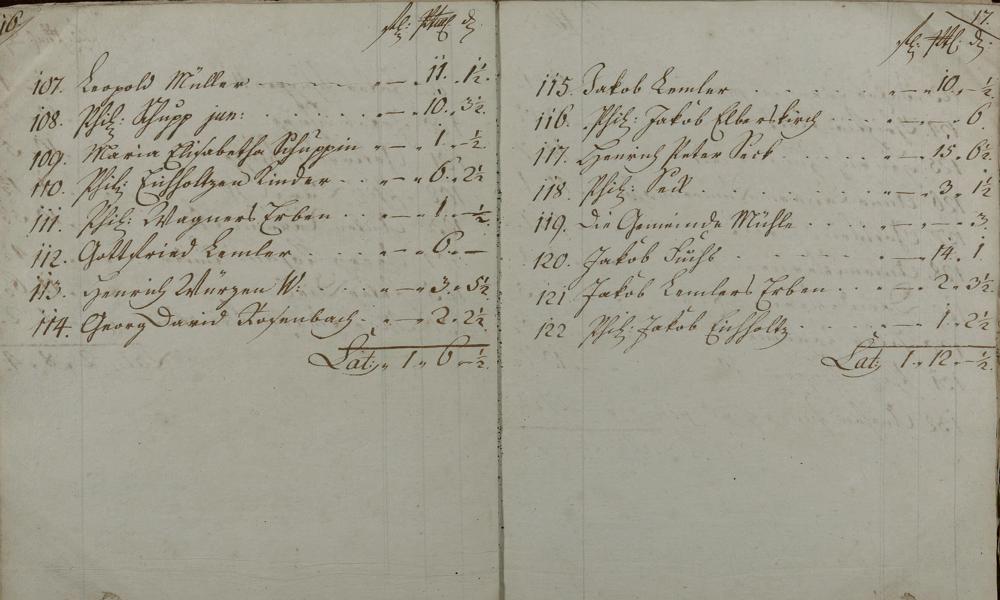 16.
107. Leopold Müller — 11. 1½.
108. Phil: Schupp jun: — 10. 3½
109. Maria Elisabetha Schuppin — 1. — ½
110. Phil: Eichholtzen Kinder — 6. 2½
111. Phil: Wagners Erben — 1. — ½.
112. Gottfried Lemler — 6. —
113. Henrich Würzen W: — 3. 5½
114. Georg David Rosenbach — 2. 2½
Lat: 1. 6. — ½.
17.
115. Jakob Lemler — 10. — ½
116. Phil: Jakob Elberskirch — 6.
117. Henrich Peter Seck — 15. 6½
118. Phil: — 3. 1½
119. Die Gemeinde Mühle — 3.
120. Jakob Fuchs — 14. 1.
121 Jakob Lemlers Erben — 2. 3½
122 Phil: Jakob Eichholtz — 1. 2½
Lat: 1. 12. — ½.